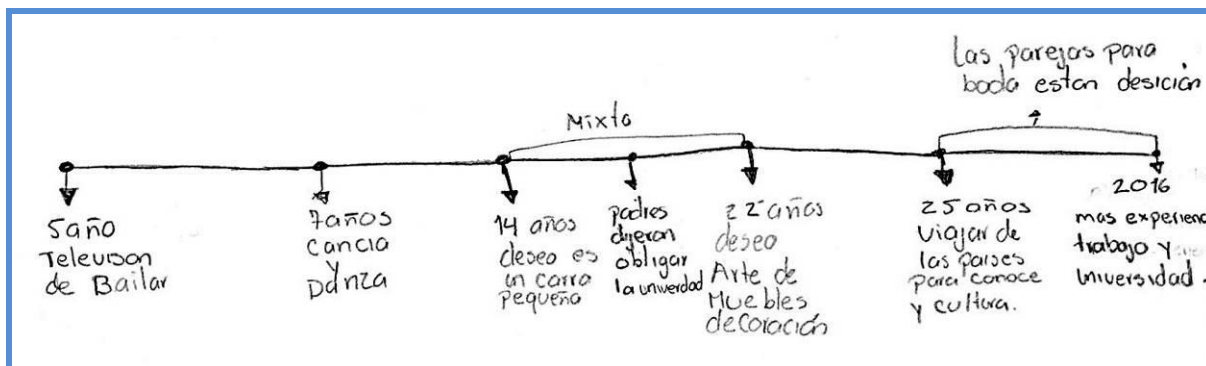 las parejas para
boda estan desición
Mixto
5año
Televison
de Bailar
7años
Cancia
y
Danza
14 años
deseo es
un carro
pequeña
padres
dijeron
obligar
la univerdad
22 años
deseo
Arte de
Muebles
decoración
25 años
viajar de
las paises
para conoce
y cultura.
2016
mas experienc
trabajo y
universidad.